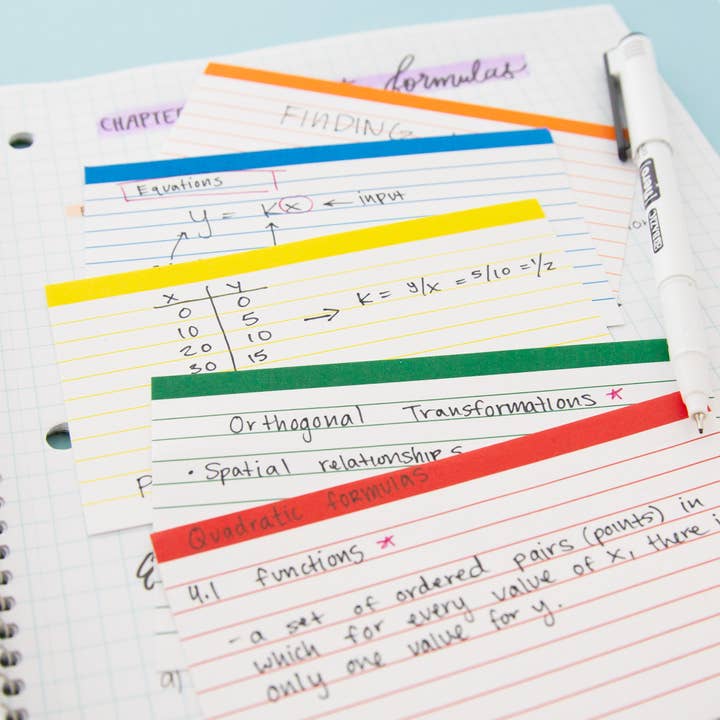 CHAPTER formulas
FINDING
Equations
y = K(x) ← input
x y
0 0
10 5
20 10
30 15
→ K = y/x = 5/10 = 1/2
Orthogonal Transformations *
• Spatial relationships
Quadratic formulas
4.1 functions *
- a set of ordered pairs (points) in
which for every value of x, there i
only one value for y.
a)